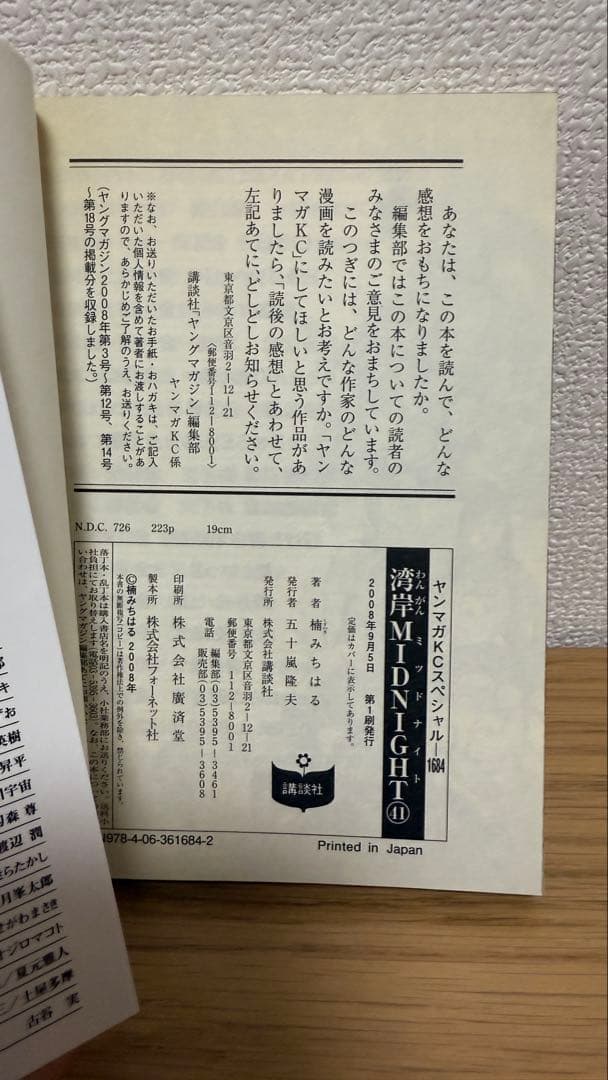 あなたは、この本を読んで、どんな
感想をおもちになりましたか。
編集部ではこの本についての読者の
みなさまのご意見をおまちしています。
このつぎには、どんな作家のどんな
漫画を読みたいとお考えですか。「ヤン
マガKC」にしてほしいと思う作品があ
りましたら、「読後の感想」とあわせて、
左記あてに、どしどしお知らせください。
東京都文京区音羽2-12-21
〈郵便番号112-8001〉
講談社「ヤングマガジン」編集部
ヤンマガKC係
※なお、お送りいただいたお手紙・おハガキは、ご記入
いただいた個人情報を含めて著者にお渡しすることがあ
りますので、あらかじめご了解のうえ、お送りください。
(ヤングマガジン2008年第3号〜第12号、第14号
〜第18号の掲載分を収録しました。)
N.D.C. 726 223p 19cm
ヤンマガKCスペシャル—1684
わんがんミッドナイト
湾岸MIDNIGHT㊶
2008年9月5日 第1刷発行
定価はカバーに表示してあります。
著者 楠みちはる
発行者 五十嵐隆夫
発行所 株式会社講談社
東京都文京区音羽2-12-21
郵便番号 112-8001
電話 編集部(03)5395-3461
販売部(03)5395-3608
印刷所 株式会社廣済堂
製本所 株式会社フォーネット社
©楠みちはる 2008年
本書の無断複写(コピー)は著作権法上での例外を除き、禁じられています。
落丁本・乱丁本は購入書店名を明記のうえ、小社業務部にお送りください。送料小
社負担にてお取り替えします
い合わせは、ヤングマガジン編集
講談社
N978-4-06-361684-2
Printed in Japan
キ
お
英樹
昇平
宇宙
森 尊
渡辺 潤
らたかし
月峯太郎
せがわまさき
オジロマコト
/夏元雅人
/土屋多摩
古谷 実